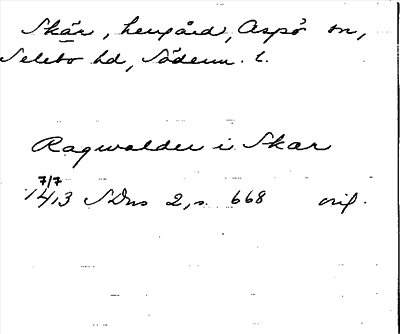 Skär, herrgård, Aspö sn,
Selebo hd, Söderm. l.
Ragwalder i Skar
7/7
1413 SDns 2, s. 668 orig.